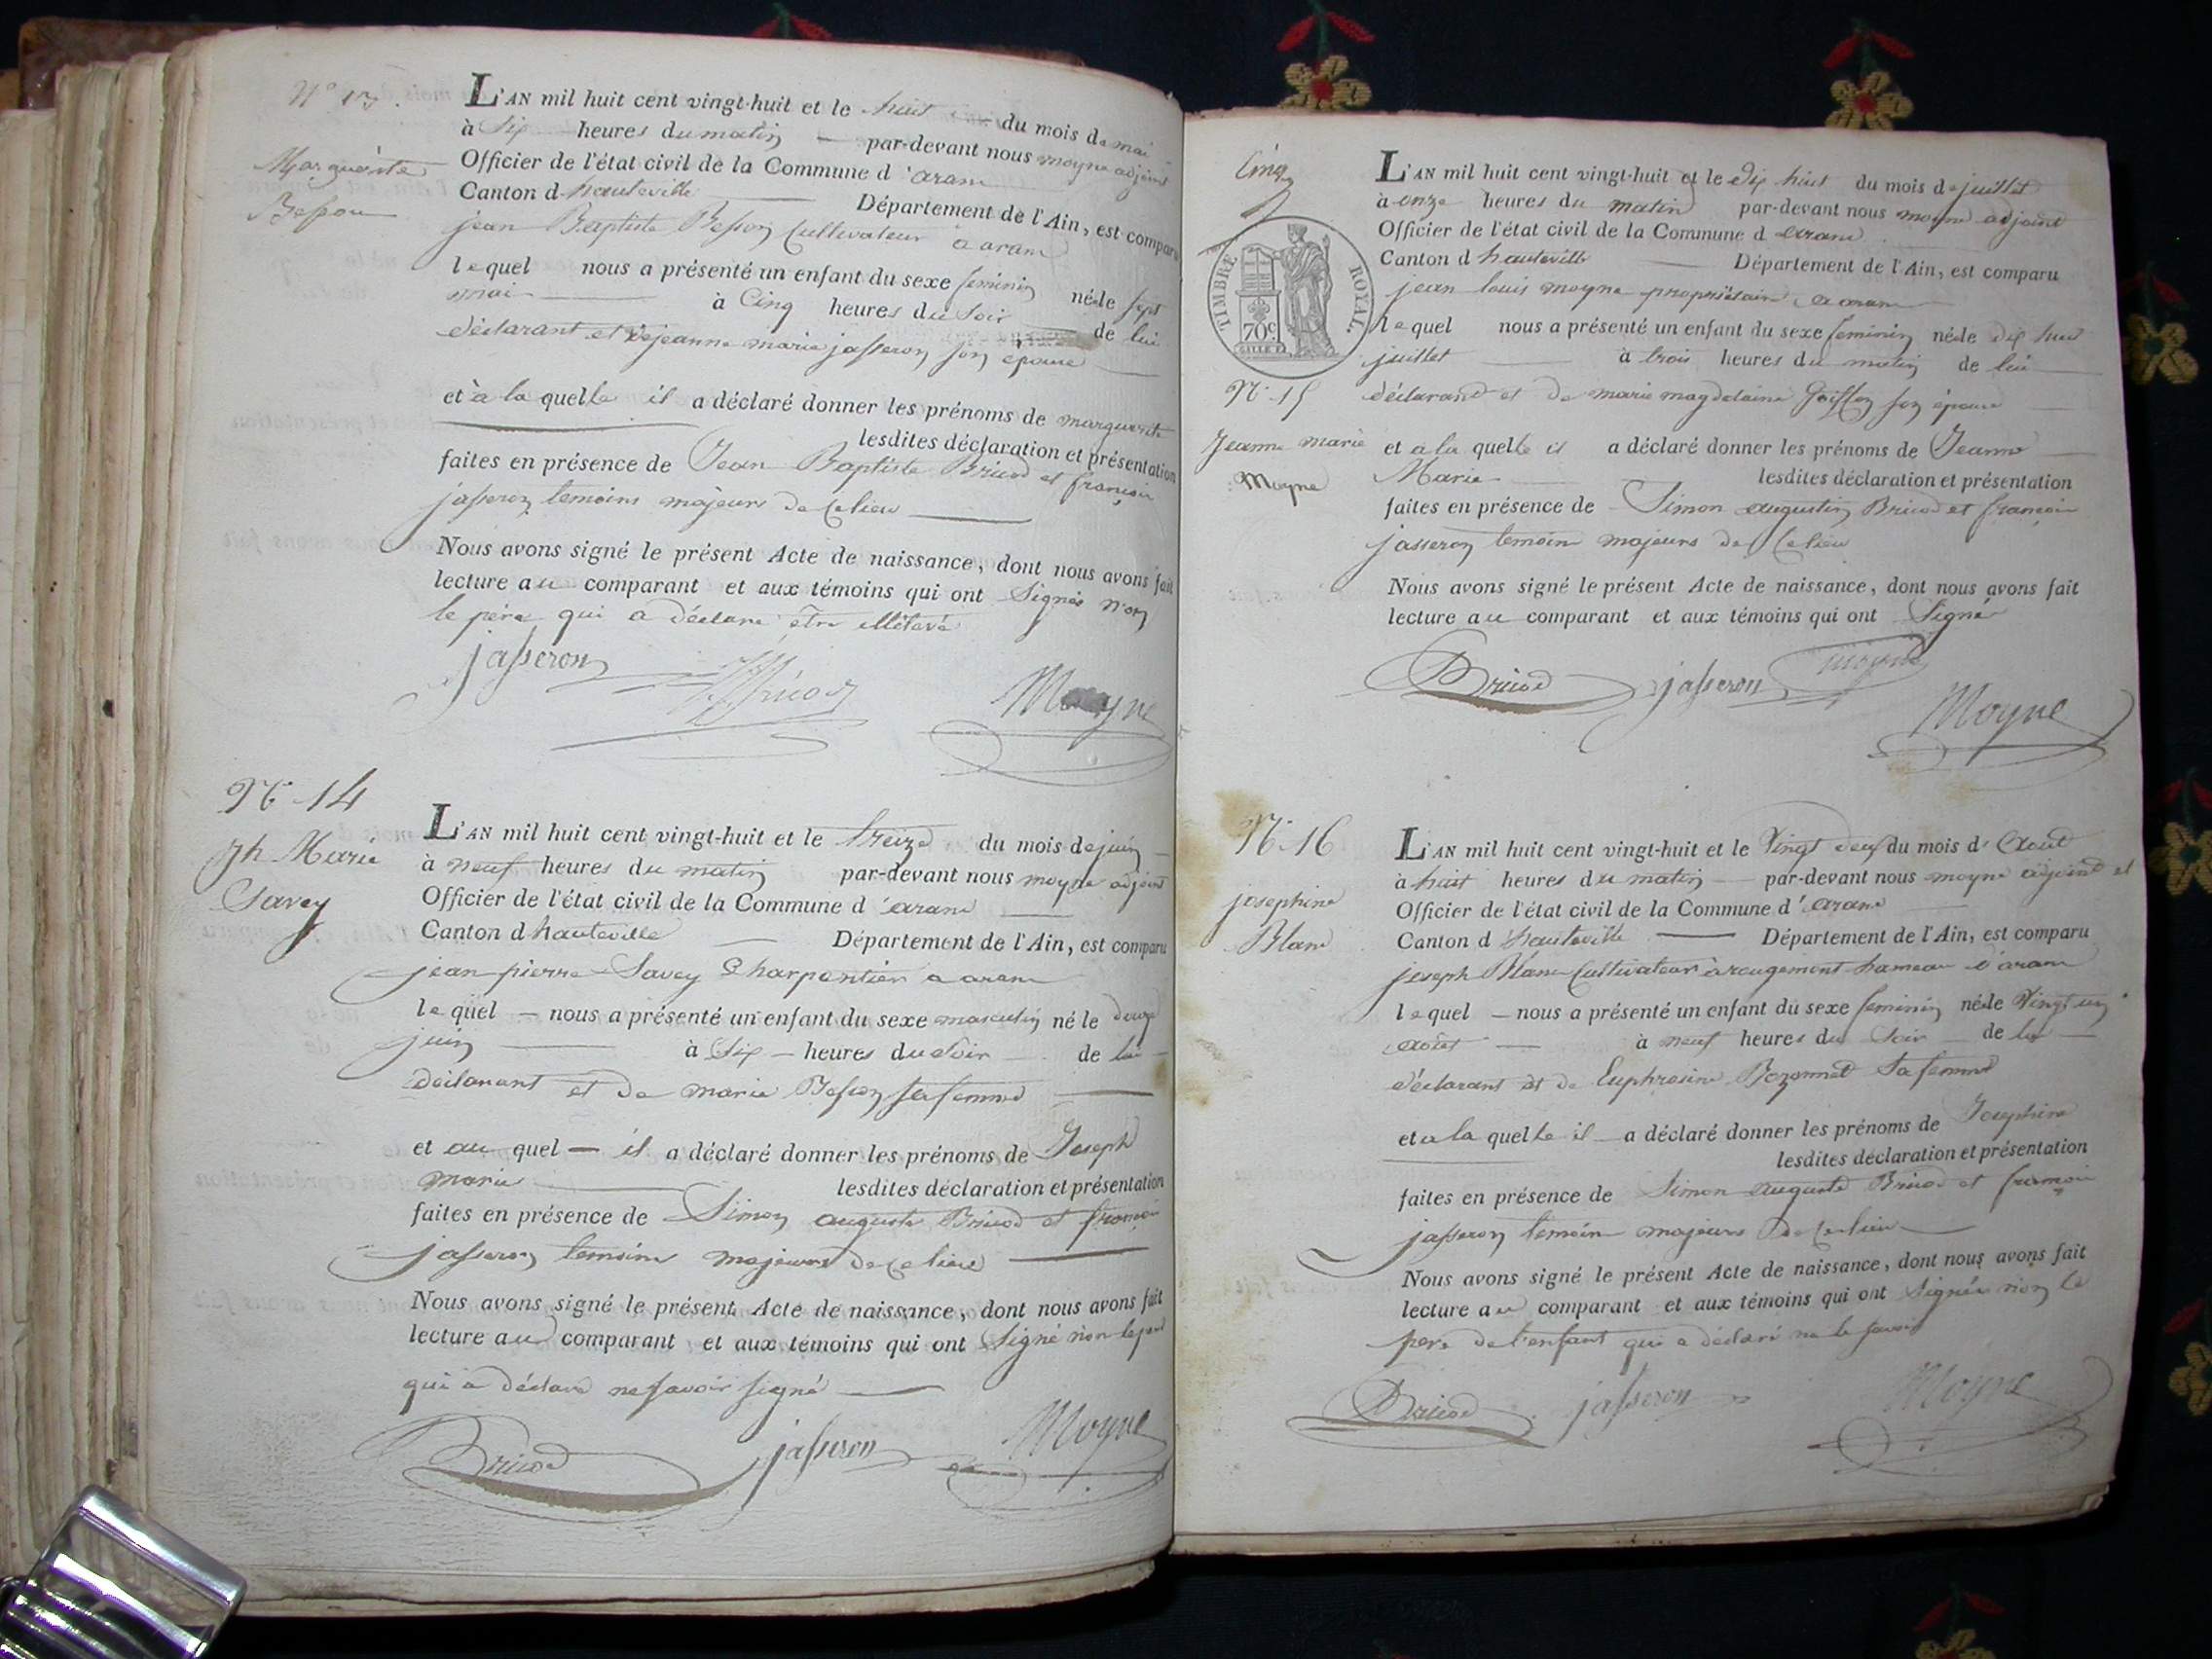 N° 13.
Marguerite
Besson
L'AN mil huit cent vingt-huit et le huit du mois de mai
à Six heures du matin par-devant nous moyne adjoint
Officier de l'état civil de la Commune d'aranc
Canton d hauteville Département de l'Ain, est comparu
jean Baptiste Besson Cultivateur a aranc
lequel nous a présenté un enfant du sexe feminin née le sept
mai à Cinq heures du Soir de lui
déclarant et de jeanne marie jasseron son épouse
et à la quelle il a déclaré donner les prénoms de marguerite
lesdites déclaration et présentation
faites en présence de Jean Baptiste Bricod et françois
jasseron temoins majeurs de Ce lieu
Nous avons signé le présent Acte de naissance, dont nous avons fait
lecture au comparant et aux témoins qui ont Signés non
le père qui a déclaré être illétéré
jasseron
JB Bricod
Moyne
N° 14
Jh Marie
Savey
L'AN mil huit cent vingt-huit et le treize du mois de juin
à neuf heures du matin par-devant nous moyne adjoint
Officier de l'état civil de la Commune d'aranc
Canton d hauteville Département de l'Ain, est comparu
jean pierre Savey Charpentier a aranc
lequel nous a présenté un enfant du sexe masculin né le douze
juin à Six heures du Soir de lui
déclarant et de marie Besson sa femme
et au quel il a déclaré donner les prénoms de Joseph
marie lesdites déclaration et présentation
faites en présence de Simon auguste Bricod et françois
jasseron temoins majeurs de Ce lieu
Nous avons signé le présent Acte de naissance, dont nous avons fait
lecture au comparant et aux témoins qui ont Signé non le père
qui a déclaré ne savoir signé
Bricod
jasseron
Moyne
Cinq
TIMBRE ROYAL.
70c.
N° 15
Jeanne marie
Moyne
L'AN mil huit cent vingt-huit et le dix huit du mois de juillet
à onze heures du matin par-devant nous moyne adjoint
Officier de l'état civil de la Commune d aranc
Canton d hauteville Département de l'Ain, est comparu
jean louis moyne propriétaire a aranc
lequel nous a présenté un enfant du sexe feminin née le dix huit
juillet à trois heures du matin de lui
déclarant et de marie magdelaine Goiffon son épouse
et a la quelle il a déclaré donner les prénoms de Jeanne
Marie lesdites déclaration et présentation
faites en présence de Simon augustin Bricod et françois
jasseron temoins majeurs de Ce lieu
Nous avons signé le présent Acte de naissance, dont nous avons fait
lecture au comparant et aux témoins qui ont Signé
Bricod
jasseron
moyne
Moyne
N° 16
josephine
Blanc
L'AN mil huit cent vingt-huit et le Vingt deux du mois d'Aout
à huit heures du matin par-devant nous moyne adjoint et
Officier de l'état civil de la Commune d'aranc
Canton d'hauteville Département de l'Ain, est comparu
joseph Blanc Cultivateur à rougemont hameau d'aranc
lequel nous a présenté un enfant du sexe feminin née le Vingt un
août à neuf heures du Soir de lui
déclarant et de Euphrosine Bozonnet Sa femme
et a la quelle il a déclaré donner les prénoms de Josephine
lesdites déclaration et présentation
faites en présence de Simon auguste Bricod et françois
jasseron temoins majeurs de Ce lieu
Nous avons signé le présent Acte de naissance, dont nous avons fait
lecture au comparant et aux témoins qui ont Signés non le
père de l'enfant qui a déclaré ne le savoir
Bricod
jasseron
Moyne